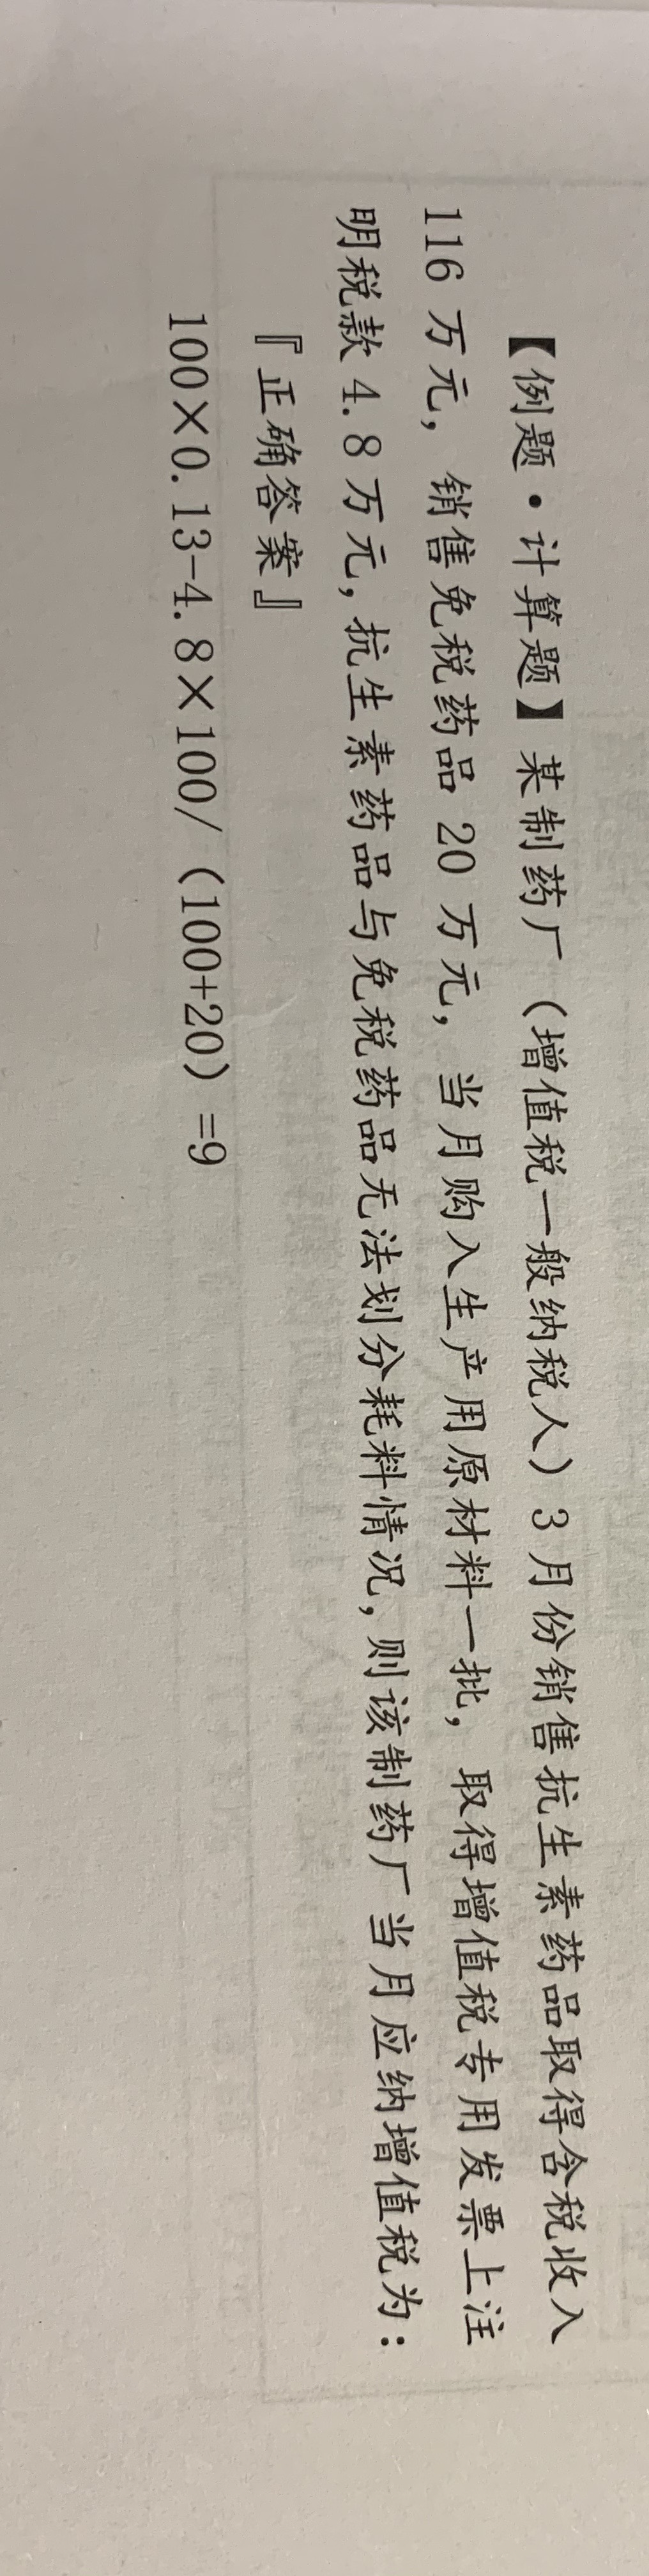 【例题·计算题】某制药厂（增值税一般纳税人）3月份销售抗生素药品取得含税收入
116 万元，销售免税药品 20 万元，当月购入生产用原材料一批，取得增值税专用发票上注
明税款 4.8 万元，抗生素药品与免税药品无法划分耗料情况，则该制药厂当月应纳增值税为：
『正确答案』
100×0.13-4.8×100/（100+20）=9